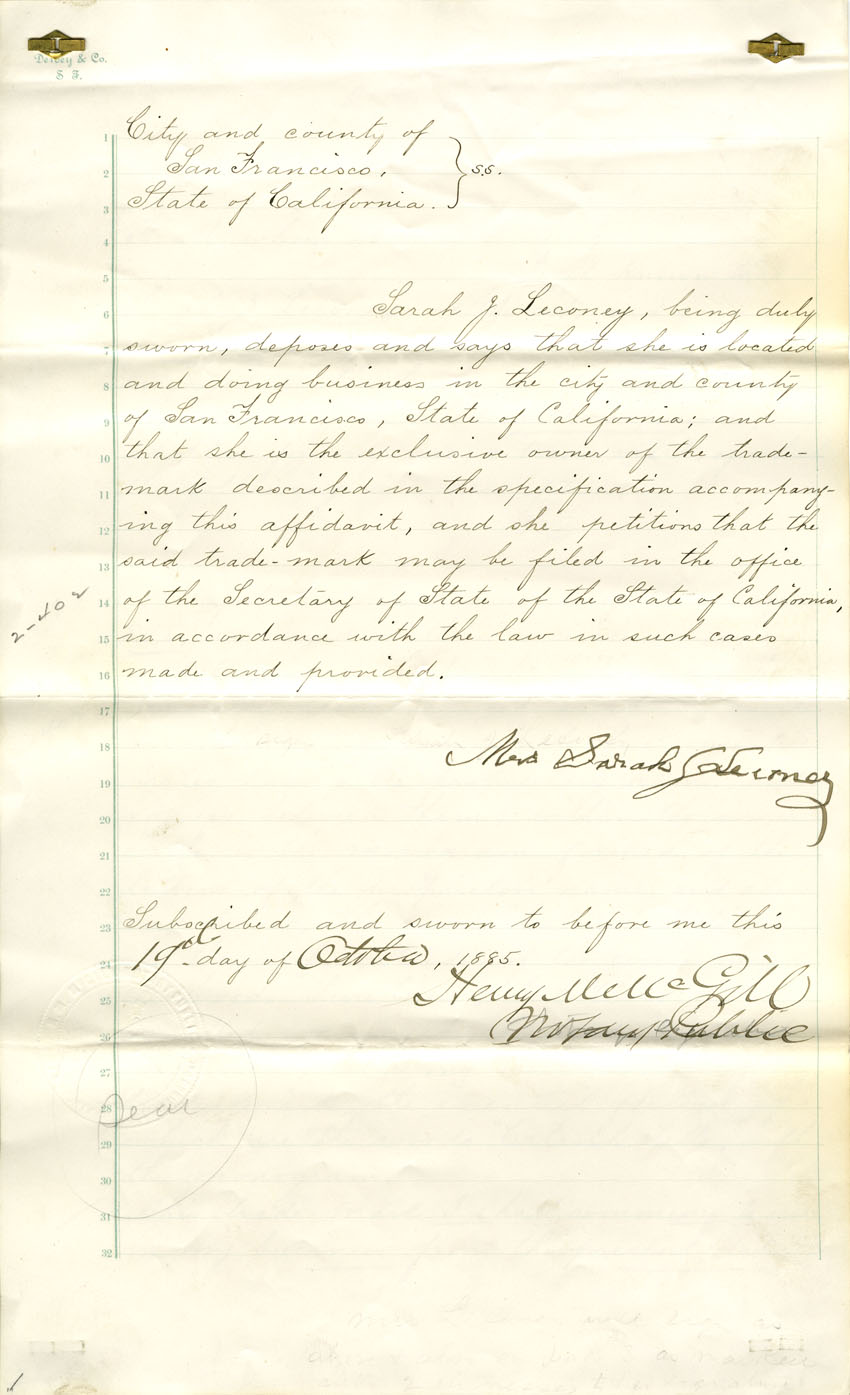 Dewey & Co.
S F.
City and county of
San Francisco,
State of California.
} s.s.
1
2
3
4
5
6
7
8
9
10
11
12
13
14
15
16
17
18
19
20
21
22
23
24
25
26
27
28
29
30
31
32
Sarah J. Leconey, being duly
sworn, deposes and says that she is located
and doing business in the city and county
of San Francisco, State of California; and
that she is the exclusive owner of the trade-
mark described in the specification accompany-
ing this affidavit, and she petitions that the
said trade-mark may be filed in the office
of the Secretary of State of the State of California,
in accordance with the law in such cases
made and provided.
2-402
Mrs Sarah J Leconey
Subscribed and sworn to before me this
19th day of October, 1885.
Henry McGill
Notary Public
Seal